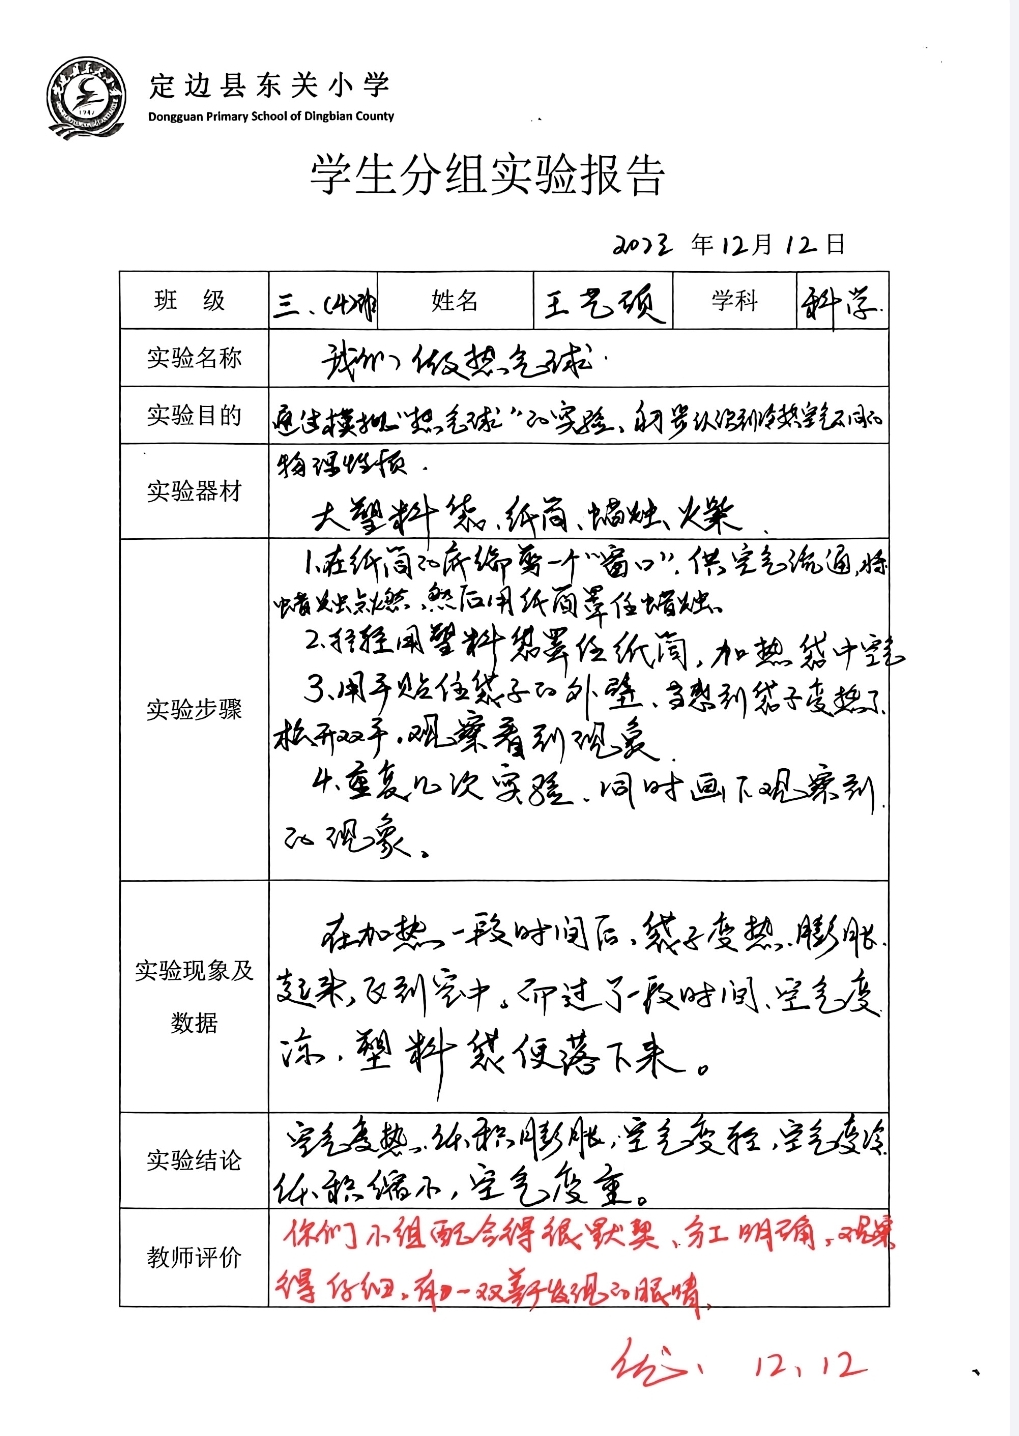 定边县东关小学
Dongguan Primary School of Dingbian County
学生分组实验报告
2023 年 12 月 12 日
班 级 三、(4)班 姓名 王艺硕 学科 科学
实验名称 我们做热气球
实验目的 通过模拟"热气球"的实验、初步认识到冷热空气不同的
物理性质.
实验器材 大塑料袋、纸筒、蜡烛、火柴.
实验步骤
1.在纸筒的底端剪一个"窗口".供空气流通,将
蜡烛点燃,然后用纸筒罩住蜡烛。
2.轻轻用塑料袋罩住纸筒,加热袋中空气
3、用手贴住袋子的外壁、当感到袋子变热了
松开双手,观察看到现象.
4.重复几次实验、同时画下观察到
的现象。
实验现象及
数据
在加热一段时间后、袋子变热.膨胀
起来,飞到空中。而过了一段时间、空气变
凉,塑料袋便落下来。
实验结论 空气变热.体积膨胀,空气变轻,空气变冷
体积缩小,空气变重。
教师评价 你们小组配合得很默契、分工明确。观察
得仔细。有一双善于发现的眼睛.
优、 12、12